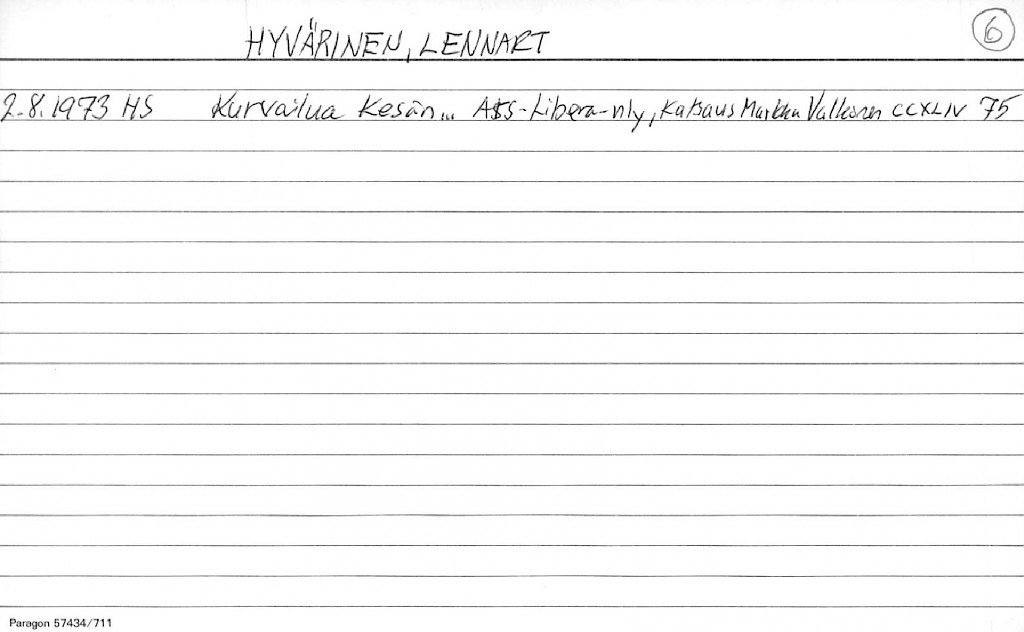 HYVÄRINEN, LENNART 6
2.8.1973 HS Kurvailua Kesän... ASS-Libera-nly, Katsaus Markku Valkonen CCXLIV 75
Paragon 57434/711